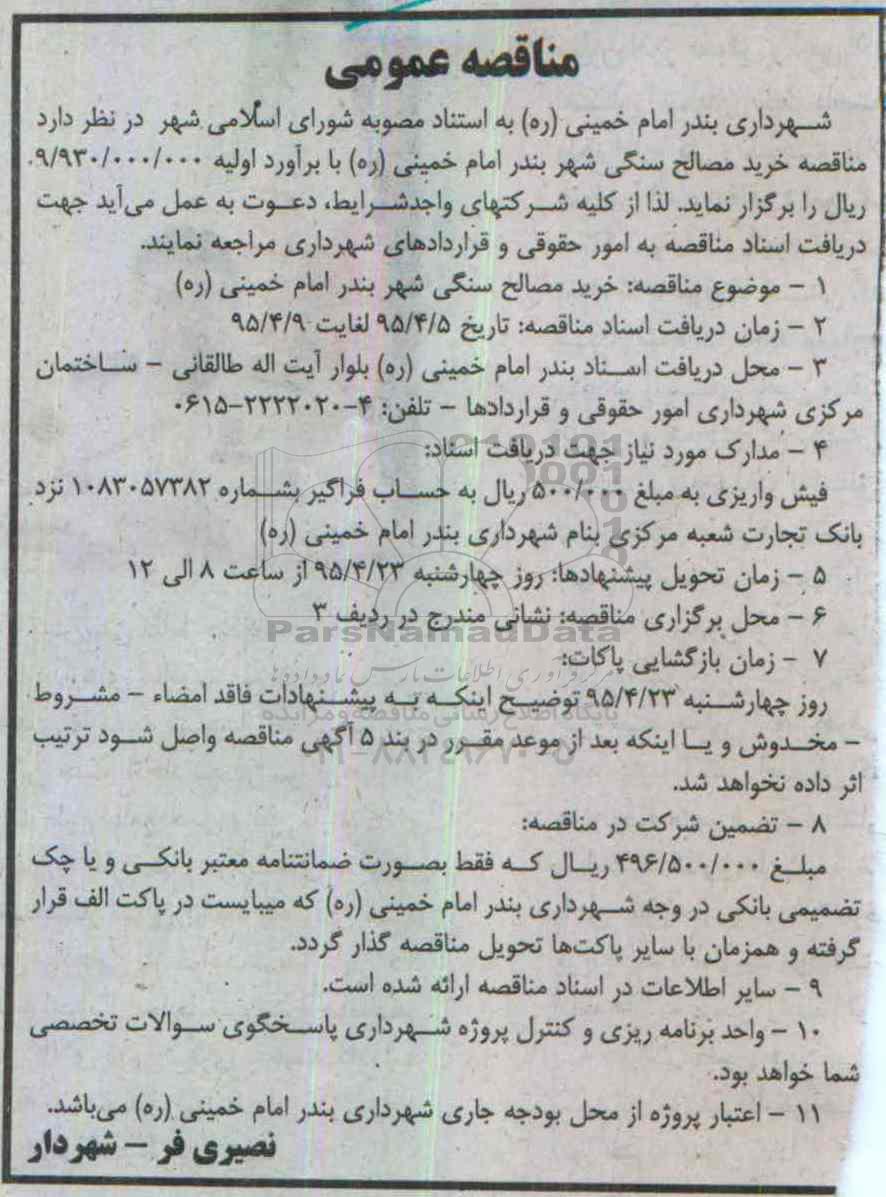 مناقصه عمومی
شهرداری بندر امام خمینی (ره) به استناد مصوبه شورای اسلامی شهر در نظر دارد
مناقصه خرید مصالح سنگی شهر بندر امام خمینی (ره) با برآورد اولیه ۹/۹۳۰/۰۰۰/۰۰۰.
ریال را برگزار نماید. لذا از کلیه شرکتهای واجدشرایط، دعوت به عمل می‌آید جهت
دریافت اسناد مناقصه به امور حقوقی و قراردادهای شهرداری مراجعه نمایند.
۱ - موضوع مناقصه: خرید مصالح سنگی شهر بندر امام خمینی (ره)
۲ - زمان دریافت اسناد مناقصه: تاریخ ۹۵/۴/۵ لغایت ۹۵/۴/۹
۳ - محل دریافت اسناد بندر امام خمینی (ره) بلوار آیت اله طالقانی - ساختمان
مرکزی شهرداری امور حقوقی و قراردادها - تلفن: ۴-۲۲۲۲۰۲۰-۰۶۱۵
۴ - مدارک مورد نیاز جهت دریافت اسناد:
فیش واریزی به مبلغ ۵۰۰/۰۰۰ ریال به حساب فراگیر بشماره ۱۰۸۳۰۵۷۳۸۲ نزد
بانک تجارت شعبه مرکزی بنام شهرداری بندر امام خمینی (ره)
۵ - زمان تحویل پیشنهادها: روز چهارشنبه ۹۵/۴/۲۳ از ساعت ۸ الی ۱۲
۶ - محل برگزاری مناقصه: نشانی مندرج در ردیف ۳
ParsNamadData
۷ - زمان بازگشایی پاکات:
روز چهارشنبه ۹۵/۴/۲۳ توضیح اینکه به پیشنهادات فاقد امضاء - مشروط
- مخدوش و یا اینکه بعد از موعد مقرر در بند ۵ آگهی مناقصه واصل شود ترتیب
اثر داده نخواهد شد.
۸ - تضمین شرکت در مناقصه:
مبلغ ۴۹۶/۵۰۰/۰۰۰ ریال که فقط بصورت ضمانتنامه معتبر بانکی و یا چک
تضمیمی بانکی در وجه شهرداری بندر امام خمینی (ره) که میبایست در پاکت الف قرار
گرفته و همزمان با سایر پاکت‌ها تحویل مناقصه گذار گردد.
۹ - سایر اطلاعات در اسناد مناقصه ارائه شده است.
۱۰ - واحد برنامه ریزی و کنترل پروژه شهرداری پاسخگوی سوالات تخصصی
شما خواهد بود.
۱۱ - اعتبار پروژه از محل بودجه جاری شهرداری بندر امام خمینی (ره) می‌باشد.
نصیری فر - شهردار